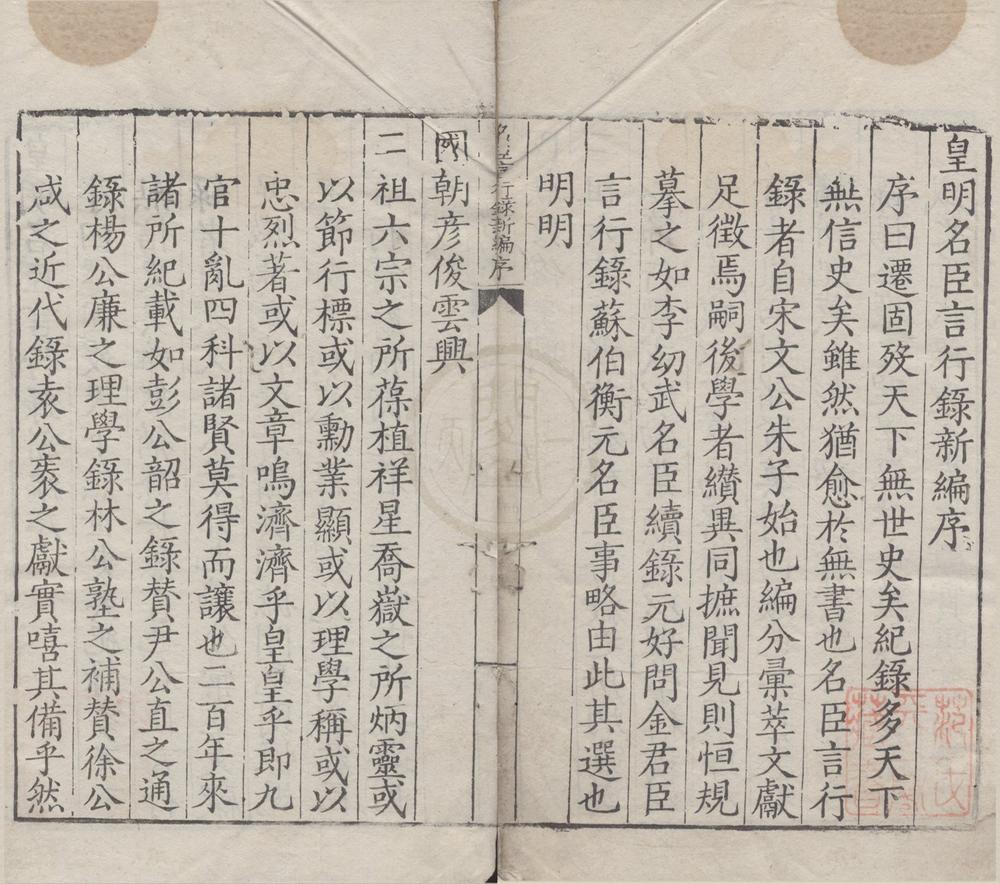 皇明名臣言行錄新編序
序曰遷固歿天下無世史矣紀錄多天下
無信史矣雖然猶愈於無書也名臣言行
錄者自宋文公朱子始也編分彙萃文獻
足徵焉嗣後學者纘異同摭聞見則恒規
摹之如李幼武名臣續錄元好問金君臣
言行錄蘇伯衡元名臣事略由此其選也
明明
名臣言行錄新編序
國朝彦俊雲興
二祖六宗之所葆植祥星喬嶽之所炳靈或
以節行標或以勳業顯或以理學稱或以
忠烈著或以文章鳴濟濟乎皇皇乎即九
官十亂四科諸賢莫得而讓也二百年來
諸所紀載如彭公韶之錄贊尹公直之通
錄楊公廉之理學錄林公塾之補贊徐公
咸之近代錄袁公袠之獻實嘻其備乎然